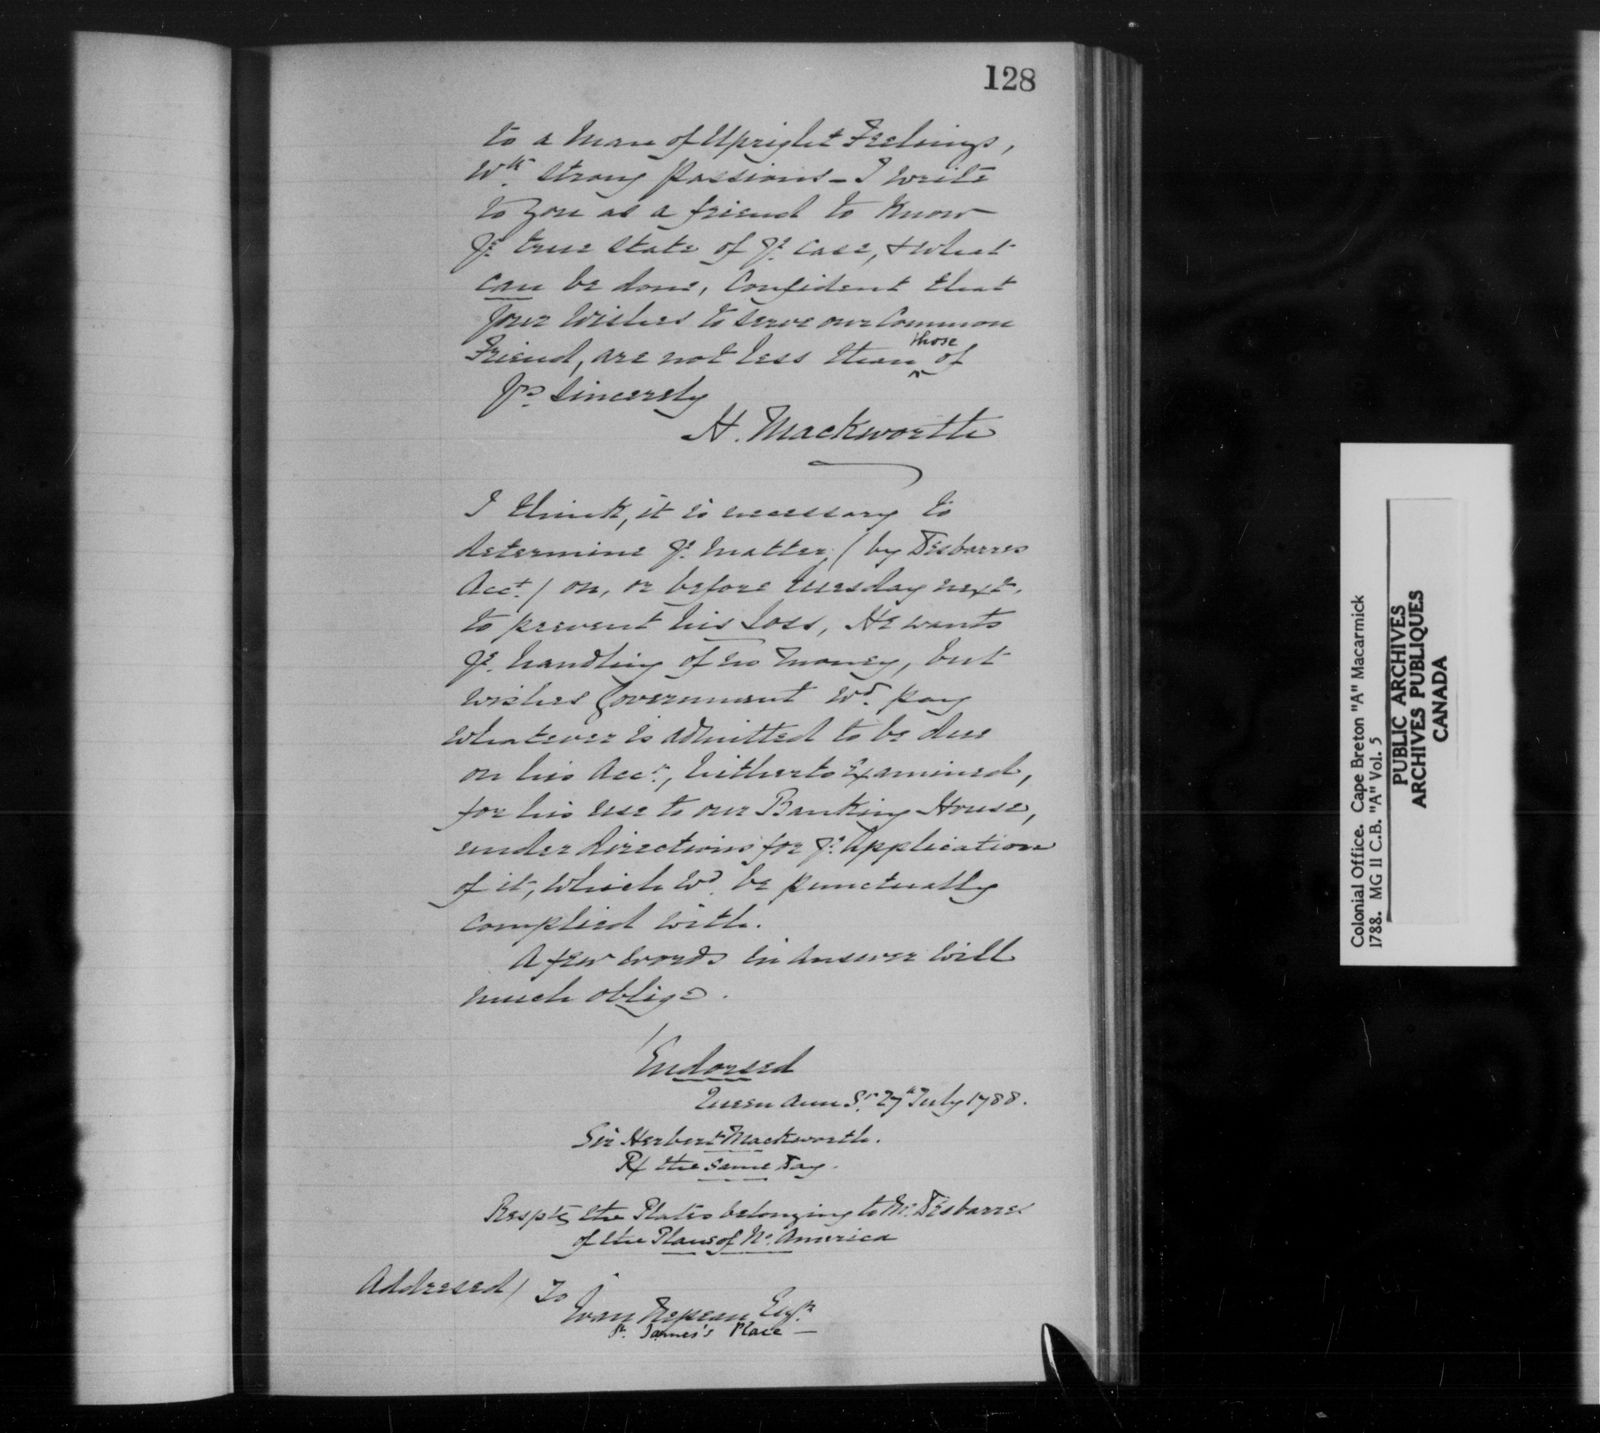 128
to a Man of Upright Feelings,
Wth. strong Passions – I write
to you as a friend to know
ye. true state of ye. case, & what
can be done, Confident that
your Wishes to serve our Common
Friend, are not less than those of
Yrs. Sincerely
H. Mackworth
I think, it is necessary to
determine ye. Matter, (by Desbarres
Acct.) on, or before Tuesday next,
to prevent his Loss, He wants
ye. handling of no Money, but
wishes Government wd. pay
whatever is admitted to be due
on his Acct., hitherto Examined,
for his use to our Banking House,
under directions for ye. Application
of it, which wd. be punctually
complied with.
A few words in answer will
much oblige.
Endorsed
Queen Ann St. 27th July 1788.
Sir Herbert Mackworth.
Rx the same Day.
Respts the Plates belonging to Mr. Desbarres
of the Plans of No. America
Addressed) To
Evan Nepean Esqr.
St. James's Place —
Colonial Office. Cape Breton "A" Macarmick
1788. MG II C.B. "A" Vol. 5
PUBLIC ARCHIVES
ARCHIVES PUBLIQUES
CANADA